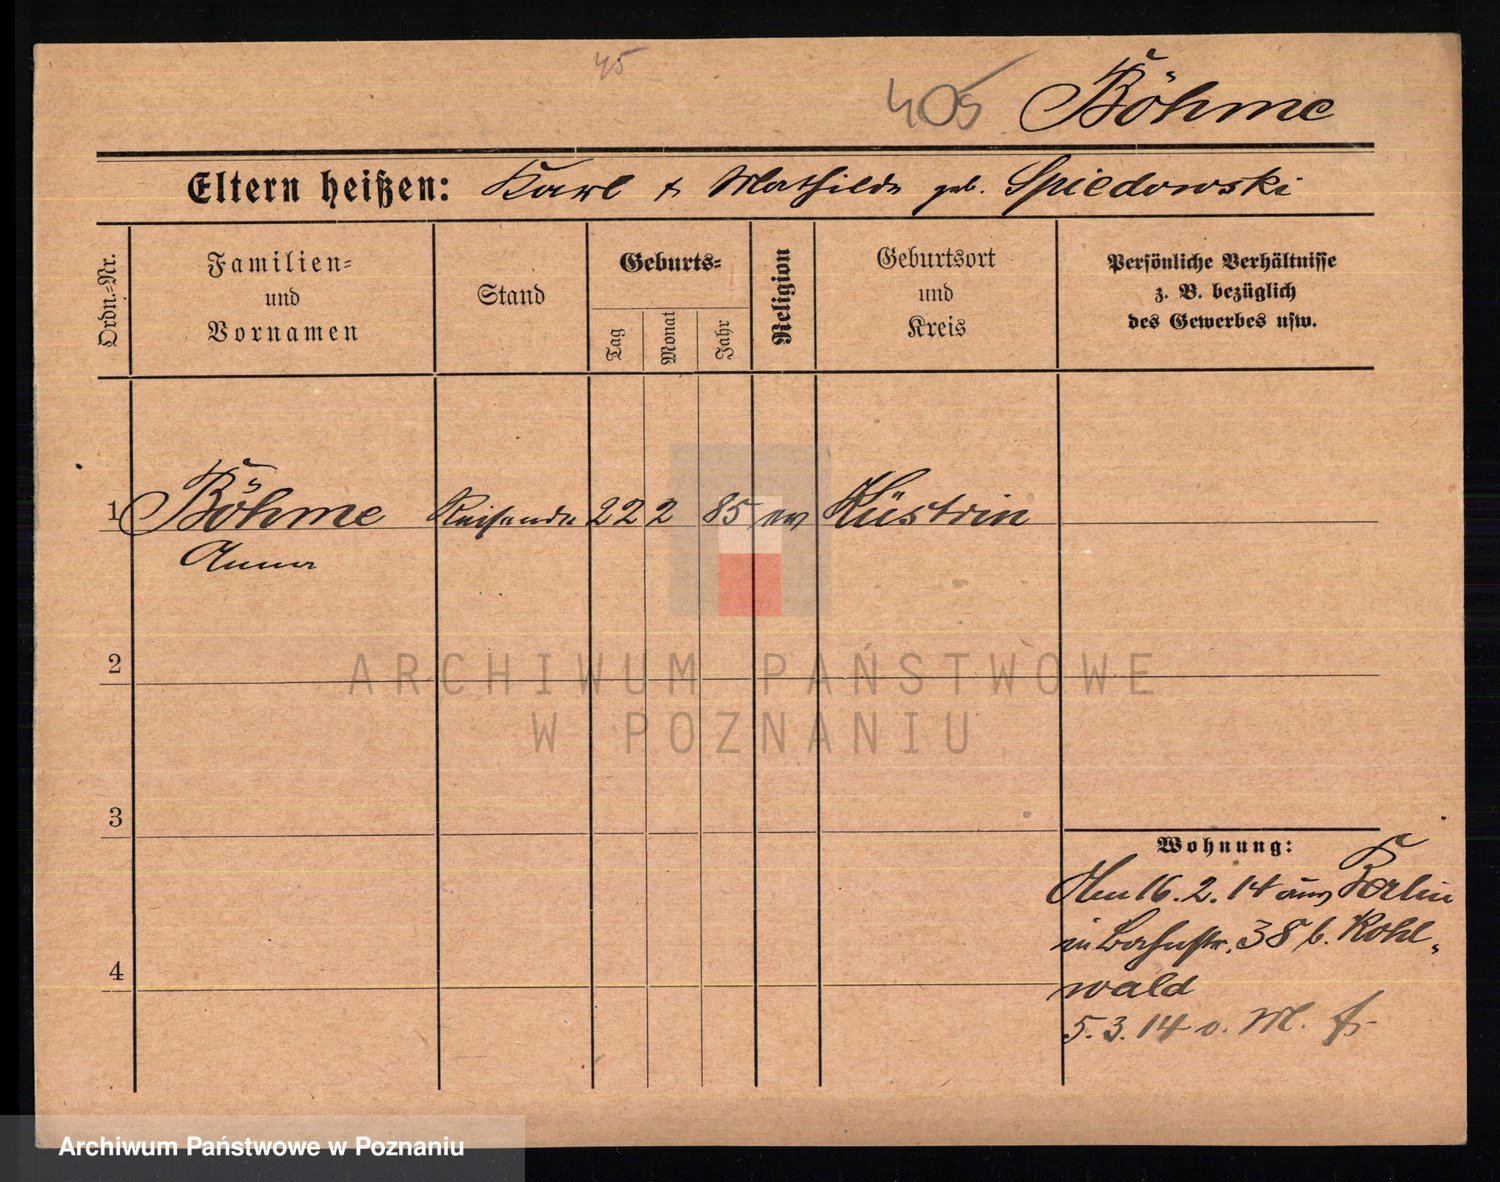 45
405 Böhme
Eltern heißen: Karl & Mathilde geb. Spiedowski
Ordn.-Nr.
Familien-
und
Vornamen
Stand
Geburts-
Tag
Monat
Jahr
Religion
Geburtsort
und
Kreis
Persönliche Verhältnisse
z. B. bezüglich
des Gewerbes usw.
1 Böhme Reisende 22 2 85 ev Küstrin
Anna
2
3
4
Wohnung:
Am 16. 2. 14 aus Berlin
in Bahnstr. 38 b. Kohl-
wald
5. 3. 14 o. M.
ARCHIWUM PAŃSTWOWE
W POZNANIU
Archiwum Państwowe w Poznaniu